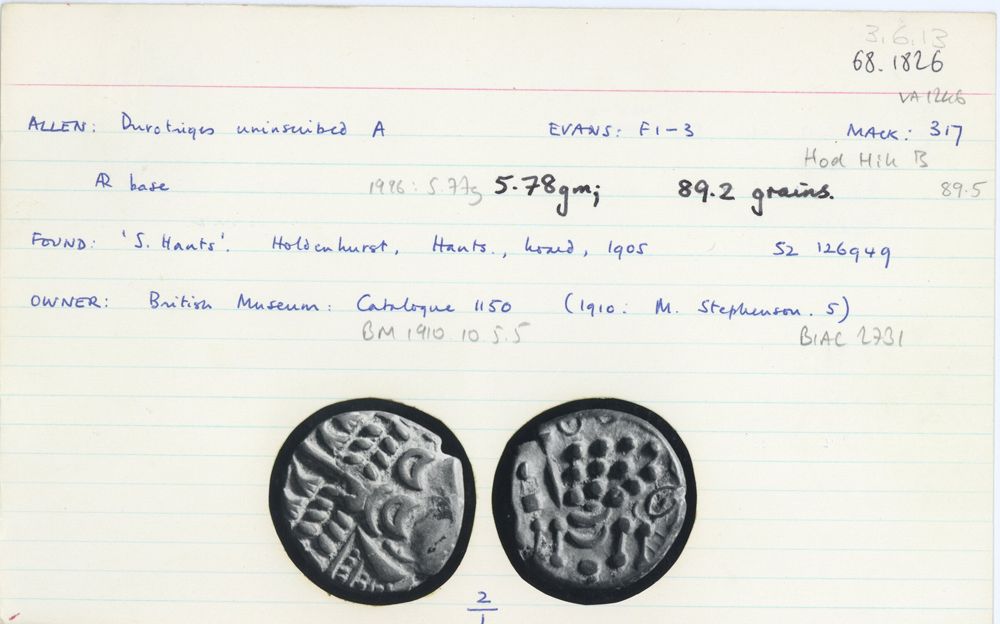 3.6.13
68.1826
VA 1246
ALLEN: Durotriges uninscribed A EVANS: F1-3 MACK: 317
Hod Hill B
AR base 1986: 5.77g 5.78gm; 89.2 grains. 89.5
FOUND: 'S. Hants'. Holdenhurst, Hants., hoard, 1905 SZ 126949
OWNER: British Museum: Catalogue 1150 (1910: M. Stephenson. 5)
BM 1910.10.5.5 BIAC 2731
2
1